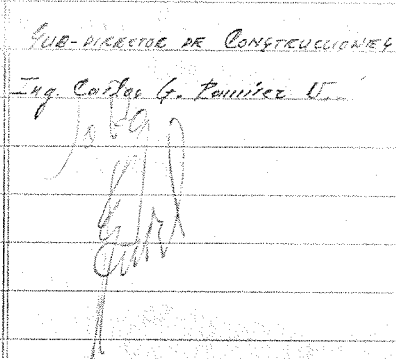 SUB-DIRECTOR DE CONSTRUCCIONES
Ing. Carlos G. Ramírez V.